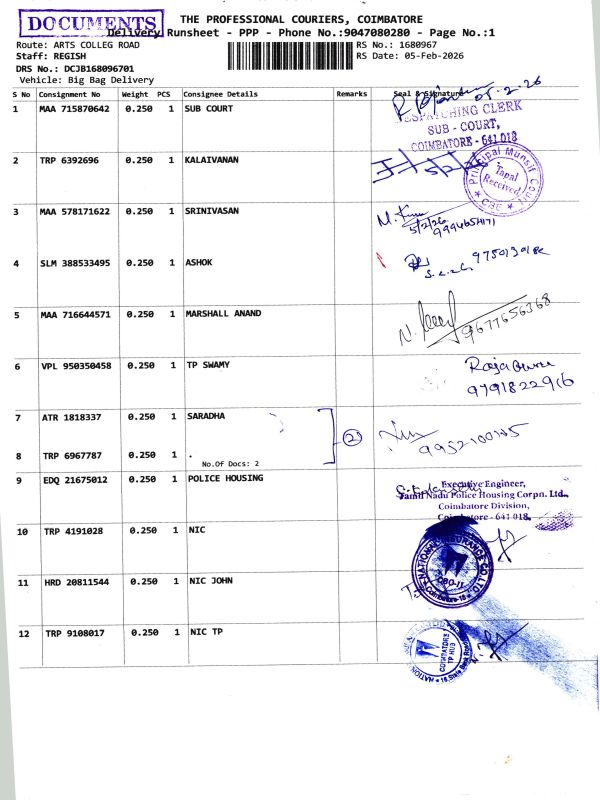 DOCUMENTS
THE PROFESSIONAL COURIERS, COIMBATORE
Delivery Runsheet - PPP - Phone No.:9047080280 - Page No.:1
Route: ARTS COLLEG ROAD
RS No.: 1680967
Staff: REGISH
RS Date: 05-Feb-2026
DRS No.: DCJB168096701
Vehicle: Big Bag Delivery
S No Consignment No Weight PCS Consignee Details Remarks Seal & Signature
1 MAA 715870642 0.250 1 SUB COURT
05-2-26
DESPATCHING CLERK
SUB - COURT,
COIMBATORE - 641 018
2 TRP 6392696 0.250 1 KALAIVANAN
Principal Munsif Court
Tapal
Received
CBE
3 MAA 578171622 0.250 1 SRINIVASAN
5/2/26
4 SLM 388533495 0.250 1 ASHOK
5 MAA 716644571 0.250 1 MARSHALL ANAND
9677656368
6 VPL 950350458 0.250 1 TP SWAMY
9791822916
7 ATR 1818337 0.250 1 SARADHA
(2)
8 TRP 6967787 0.250 1 .
No.Of Docs: 2
9 EDQ 21675012 0.250 1 POLICE HOUSING
Executive Engineer,
Tamil Nadu Police Housing Corpn. Ltd.,
Coimbatore Division,
Coimbatore - 641 018.
10 TRP 4191028 0.250 1 NIC
NATIONAL INSURANCE CO LTD
CBO-II
Coimbatore-18
11 HRD 20811544 0.250 1 NIC JOHN
12 TRP 9108017 0.250 1 NIC TP
COIMBATORE
TP HUB